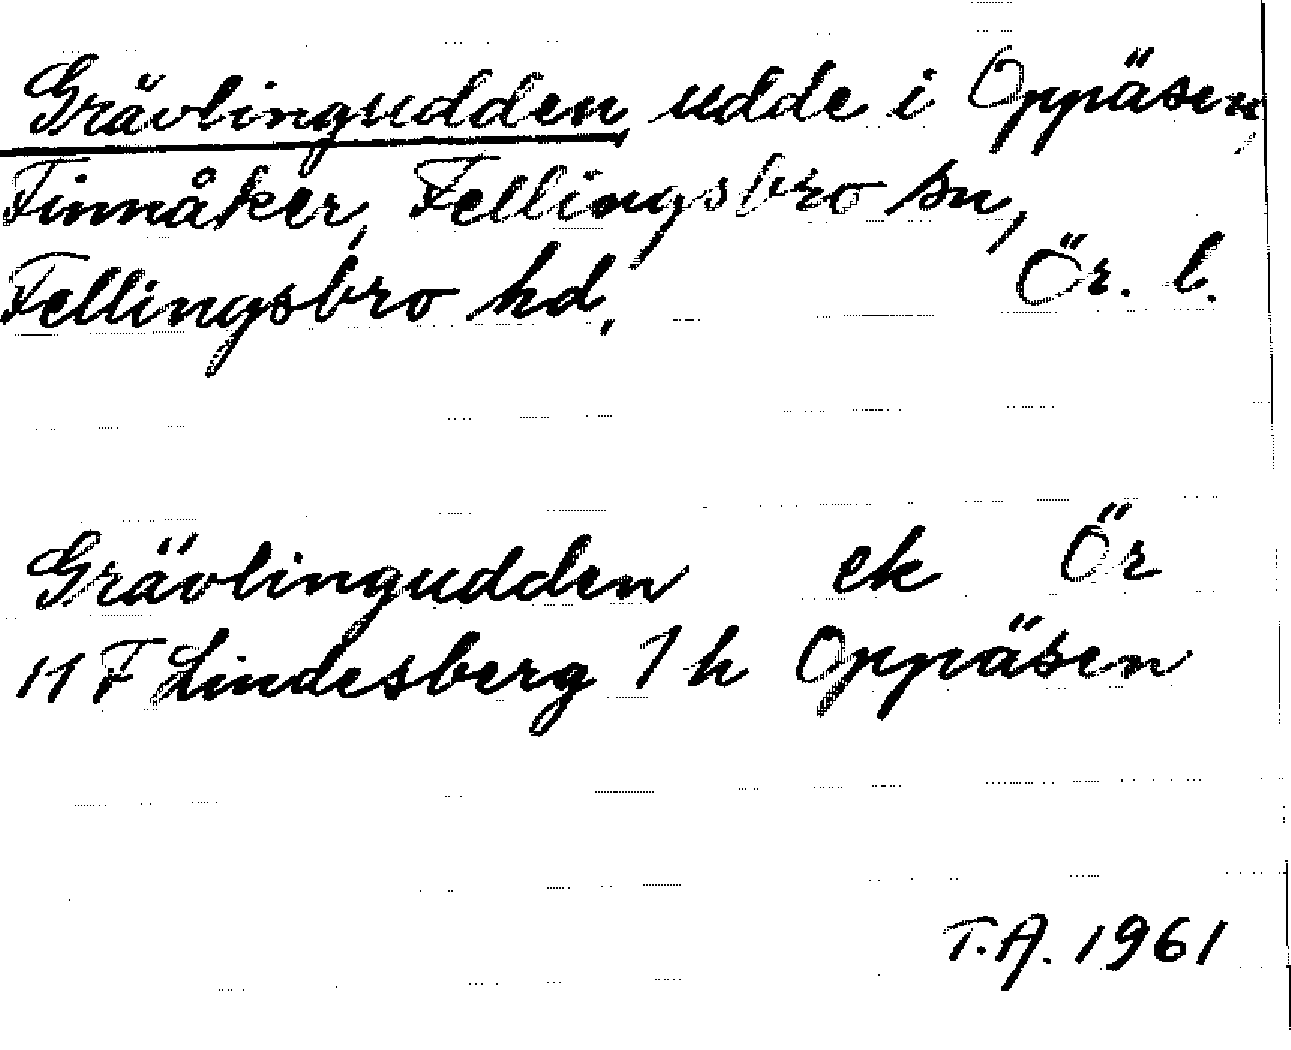 Grävlingudden, udde i Oppäsen,
Finnåker, Fellingsbro sn,
Fellingsbro hd, Ör. l.
Grävlingudden ek Ör
11 F Lindesberg 1 h Oppäsen
T.A. 1961